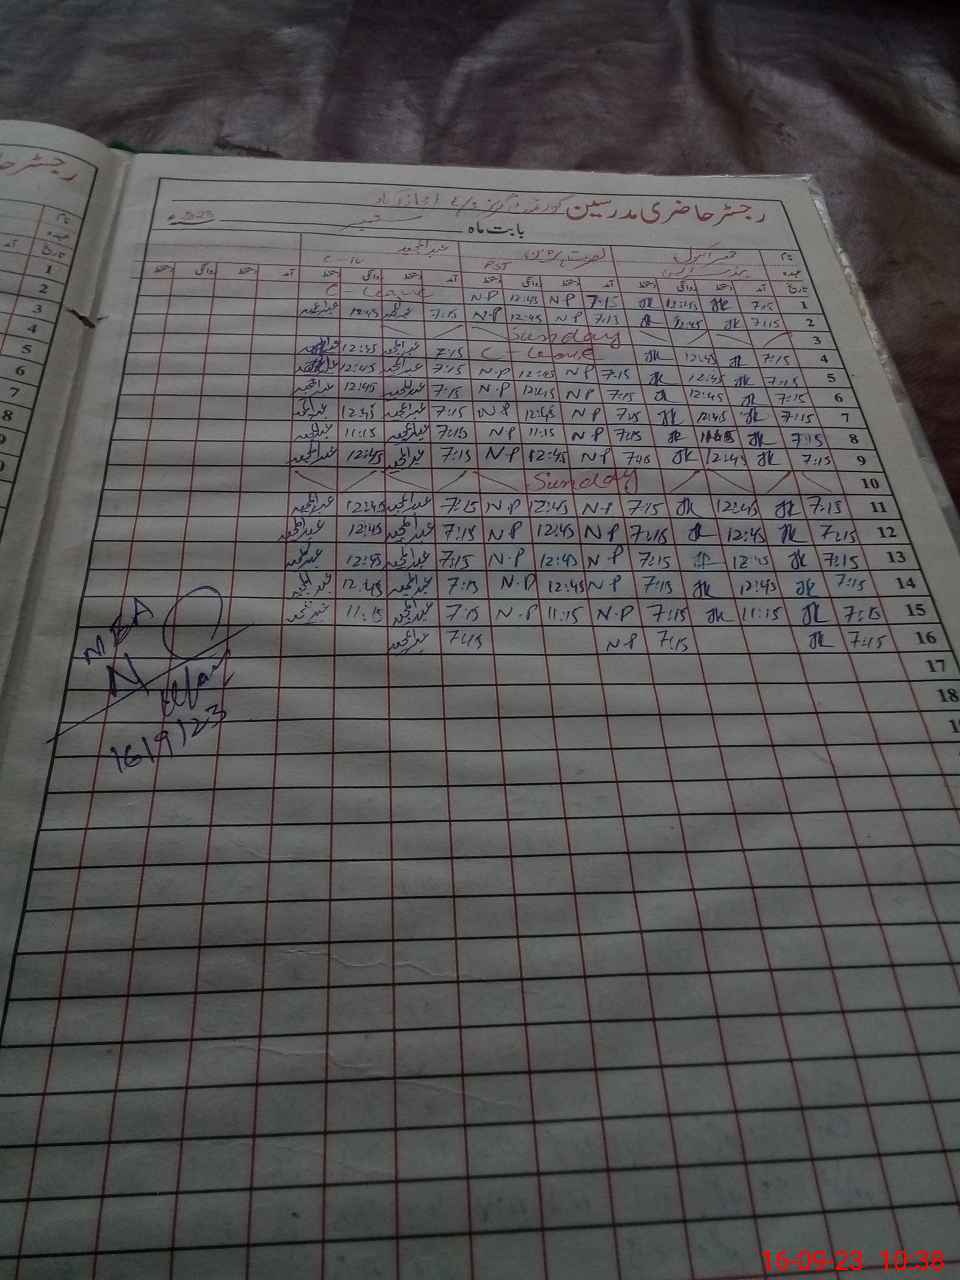 رجسٹر حاضری مدرسین
بابت ماہ ستمبر 2023ء
نام
عہدہ PST C-IV
تاریخ آمد دستخط روانگی دستخط آمد دستخط روانگی دستخط آمد دستخط روانگی دستخط آمد دستخط روانگی دستخط
1 7:15 JK 12:45 JK 7:15 N-P 12:45 N-P C-Leave
2 7:15 JK 12:45 JK 7:15 N-P 12:45 N-P 7:15 عبدالمجید 12:45 عبدالمجید
3 Sunday
4 7:15 JK 12:45 JK C-Leave 7:15 عبدالمجید 12:45 عبدالمجید
5 7:15 JK 12:45 JK 7:15 N-P 12:45 N-P 7:15 عبدالمجید 12:45 عبدالمجید
6 7:15 JK 12:45 JK 7:15 N-P 12:45 N-P 7:15 عبدالمجید 12:45 عبدالمجید
7 7:15 JK 12:45 JK 7:15 N-P 12:45 N-P 7:15 عبدالمجید 12:45 عبدالمجید
8 7:15 JK 11:15 JK 7:15 N-P 11:15 N-P 7:15 عبدالمجید 11:15 عبدالمجید
9 7:15 JK 12:45 JK 7:15 N-P 12:45 N-P 7:15 عبدالمجید 12:45 عبدالمجید
10 Sunday
11 7:15 JK 12:45 JK 7:15 N-P 12:45 N-P 7:15 عبدالمجید 12:45 عبدالمجید
12 7:15 JK 12:45 JK 7:15 N-P 12:45 N-P 7:15 عبدالمجید 12:45 عبدالمجید
13 7:15 JK 12:45 JK 7:15 N-P 12:45 N-P 7:15 عبدالمجید 12:45 عبدالمجید
14 7:15 JK 12:45 JK 7:15 N-P 12:45 N-P 7:15 عبدالمجید 12:45 عبدالمجید
15 7:15 JK 11:15 JK 7:15 N-P 11:15 N-P 7:15 عبدالمجید 11:15 عبدالمجید
16 7:15 JK 7:15 N-P 7:15 عبدالمجید
17
18
MEA
N
16/9/23
نام
عہدہ
تاریخ
1
2
3
4
5
6
7
8
9
16-09-23 10:38